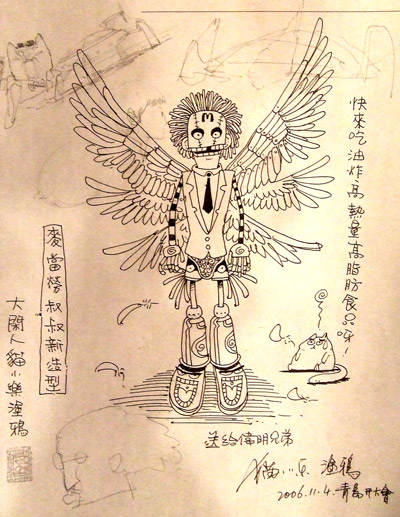 快來吃油炸高熱量高脂肪食品呀！
M
麥當勞叔叔新造型
大閑人貓小樂塗鴉
送給偉明兄弟
貓小乐 塗鴉
2006.11.4.青島开大會